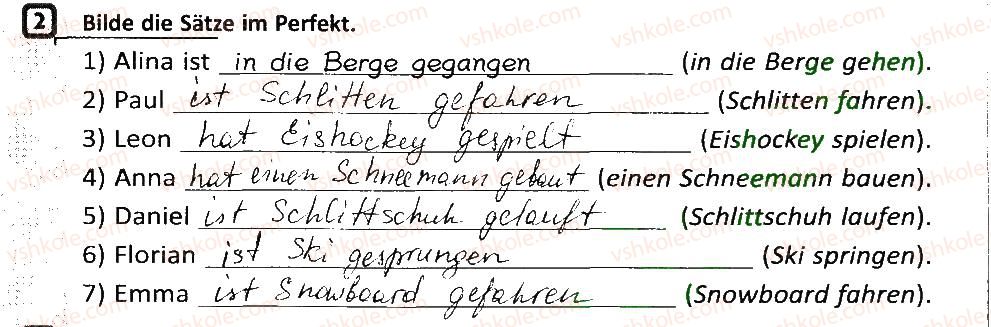 2 Bilde die Sätze im Perfekt.
1) Alina ist in die Berge gegangen (in die Berge gehen).
2) Paul ist Schlitten gefahren (Schlitten fahren).
3) Leon hat Eishockey gespielt (Eishockey spielen).
4) Anna hat einen Schneemann gebaut (einen Schneemann bauen).
5) Daniel ist Schlittschuh gelauft (Schlittschuh laufen).
6) Florian ist Ski gesprungen (Ski springen).
7) Emma ist Snowboard gefahren (Snowboard fahren).